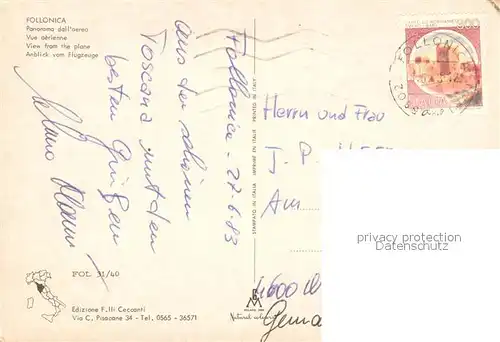 FOLLONICA
Panorama dall'aereo
Vue aérienne
View from the plane
Anblick vom Flugzeuge
Follonica - 27.6.83
aus der schönen
Toscana mit den
besten Grüßen
FOL 31/40
Edizione F.lli Ceccanti
Via C. Pisacane 34 - Tel. 0565 - 36571
STAMPATO IN ITALIA IMPRIMÉ EN ITALIE PRINTED IN ITALY
FOLLONICA
Herrn und Frau
J. P.
Am
4600
Germa
privacy protection
Datenschutz